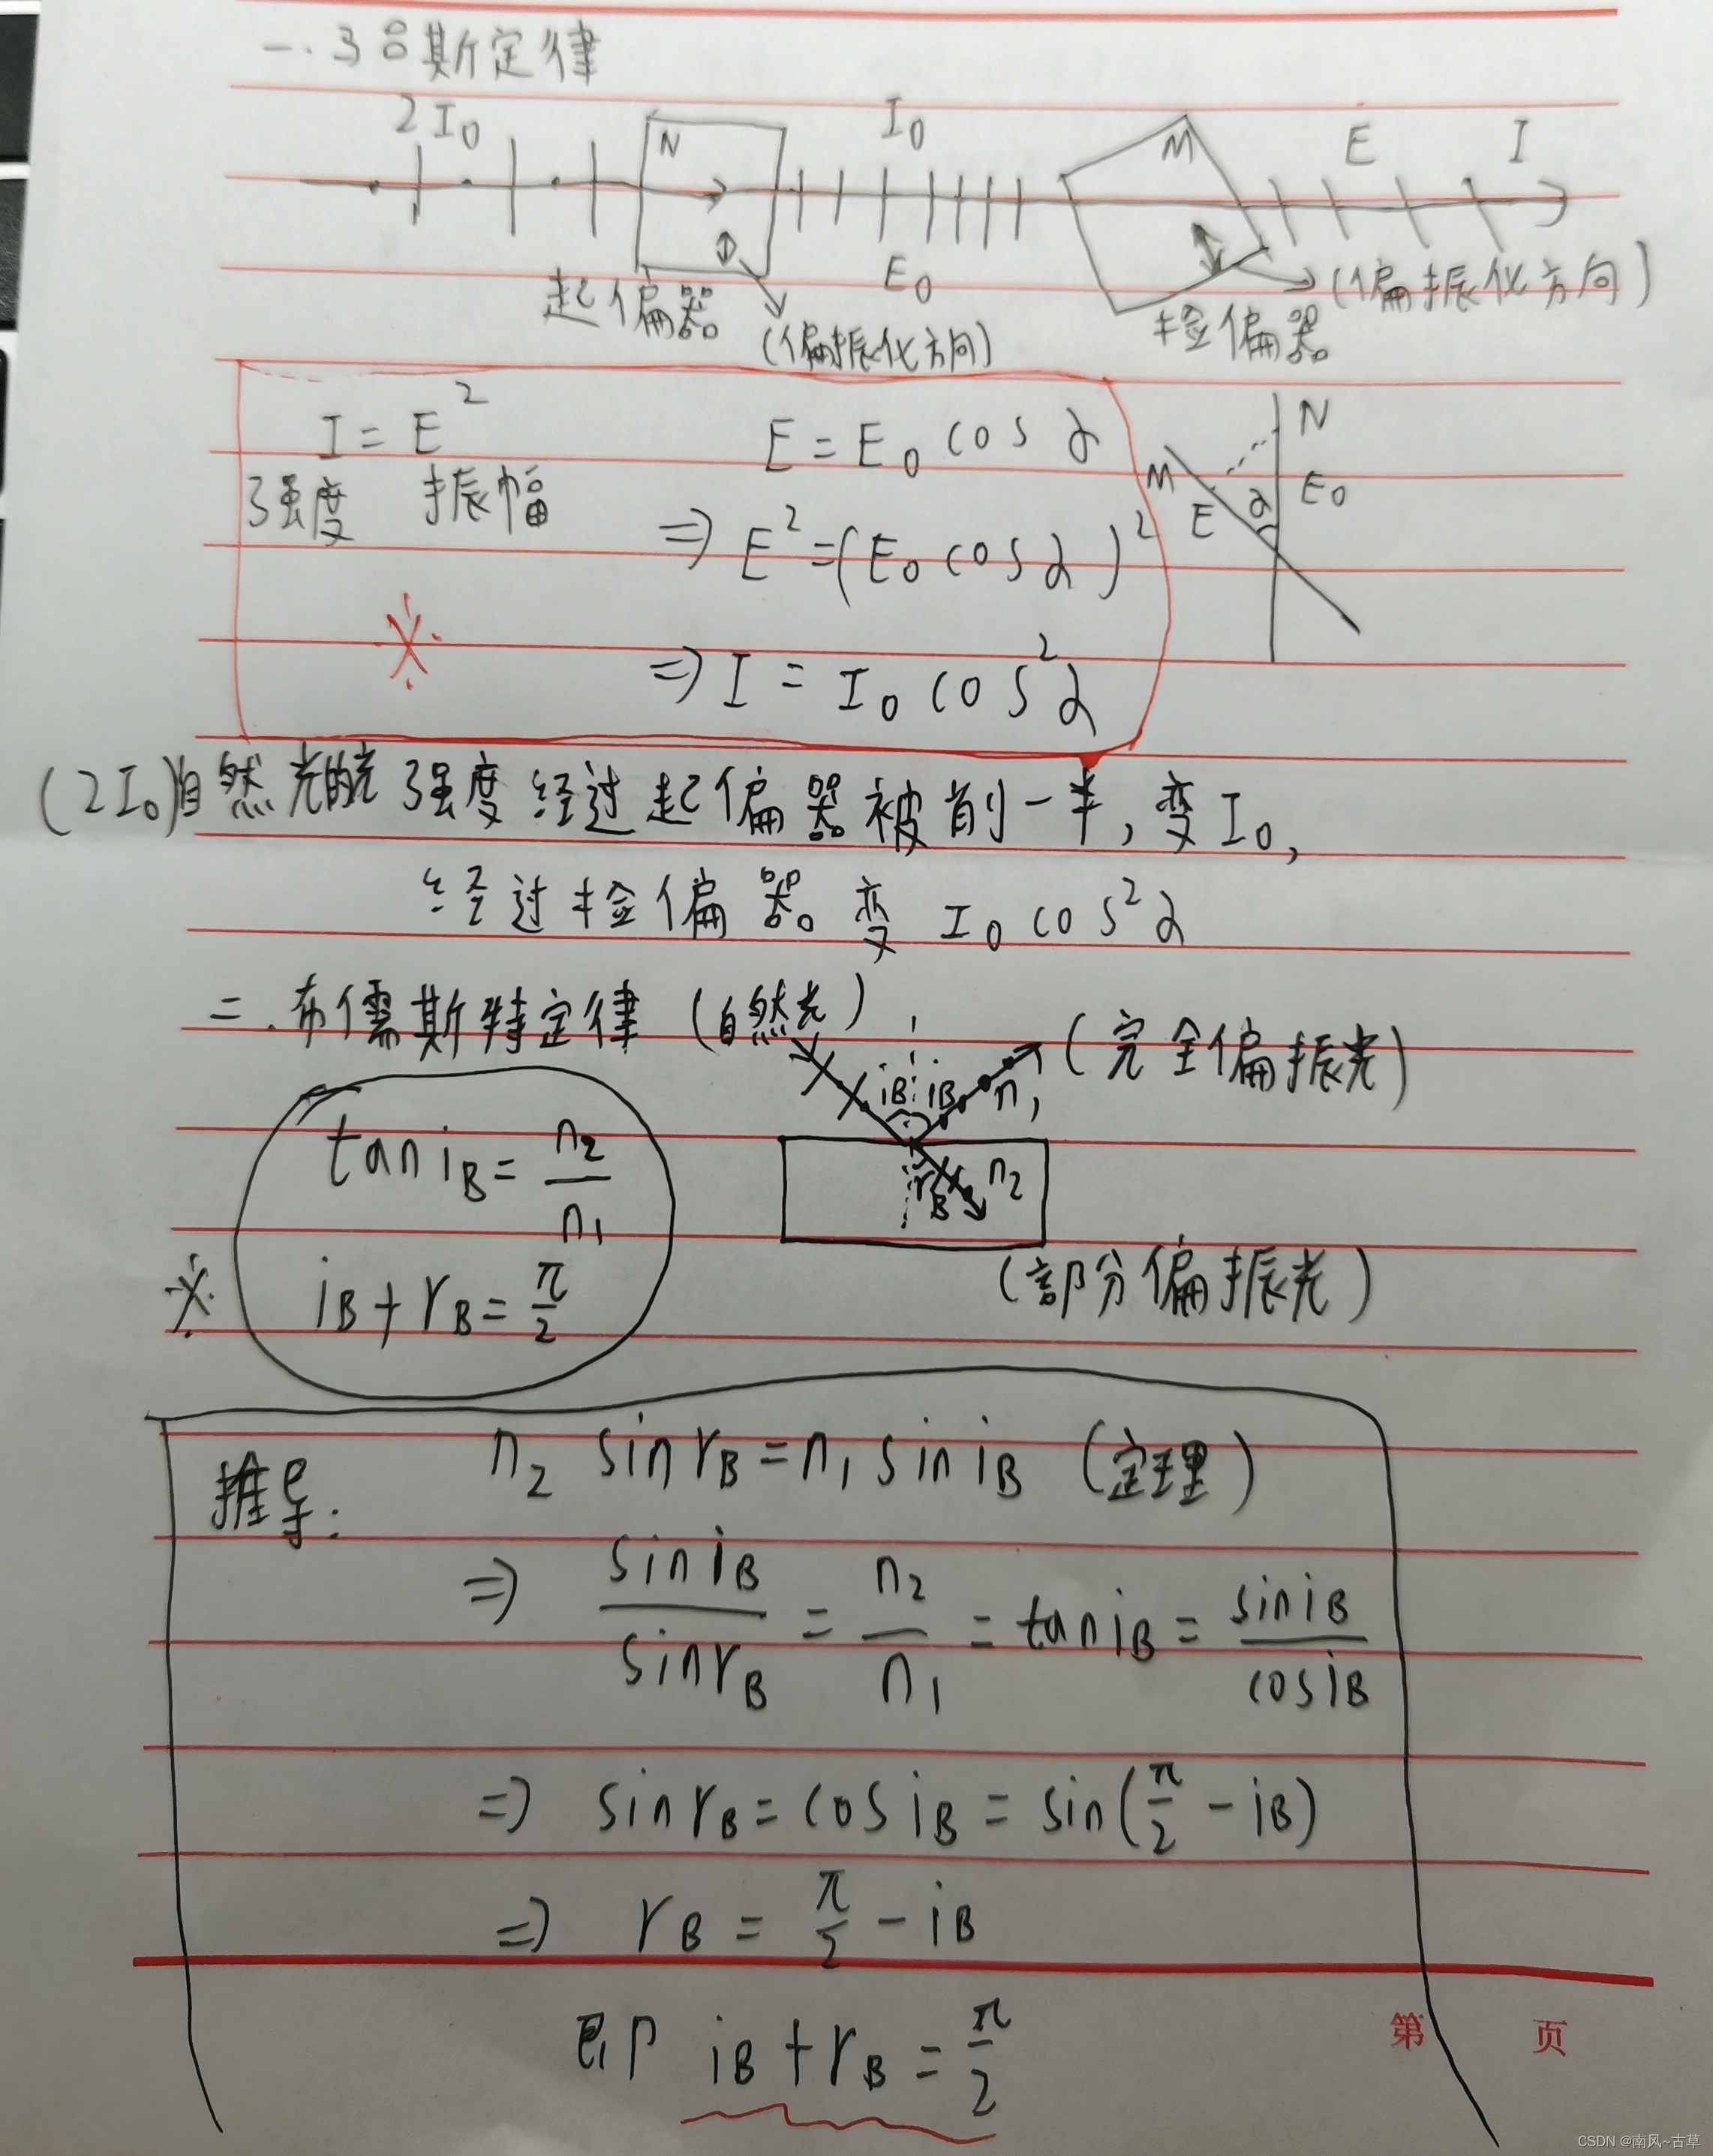 一.马吕斯定律
2I₀ N I₀ M E I
E₀
起偏器 (偏振化方向) 检偏器 (偏振化方向)
I = E² E = E₀ cos α
强度 振幅
⇒ E² = (E₀ cos α)²
⇒ I = I₀ cos²α
N
M E α E₀
(2I₀)自然光的光强度经过起偏器被削一半,变I₀,
经过检偏器变 I₀ cos²α
二.布儒斯特定律 (自然光)
(完全偏振光)
iB iB n₁
rB n₂
(部分偏振光)
tan iB = n₂/n₁
※ iB + rB = π/2
推导: n₂ sin rB = n₁ sin iB (定理)
⇒ sin iB/sin rB = n₂/n₁ = tan iB = sin iB/cos iB
⇒ sin rB = cos iB = sin(π/2 - iB)
⇒ rB = π/2 - iB
即 iB + rB = π/2
第 页
CSDN @南风~古草